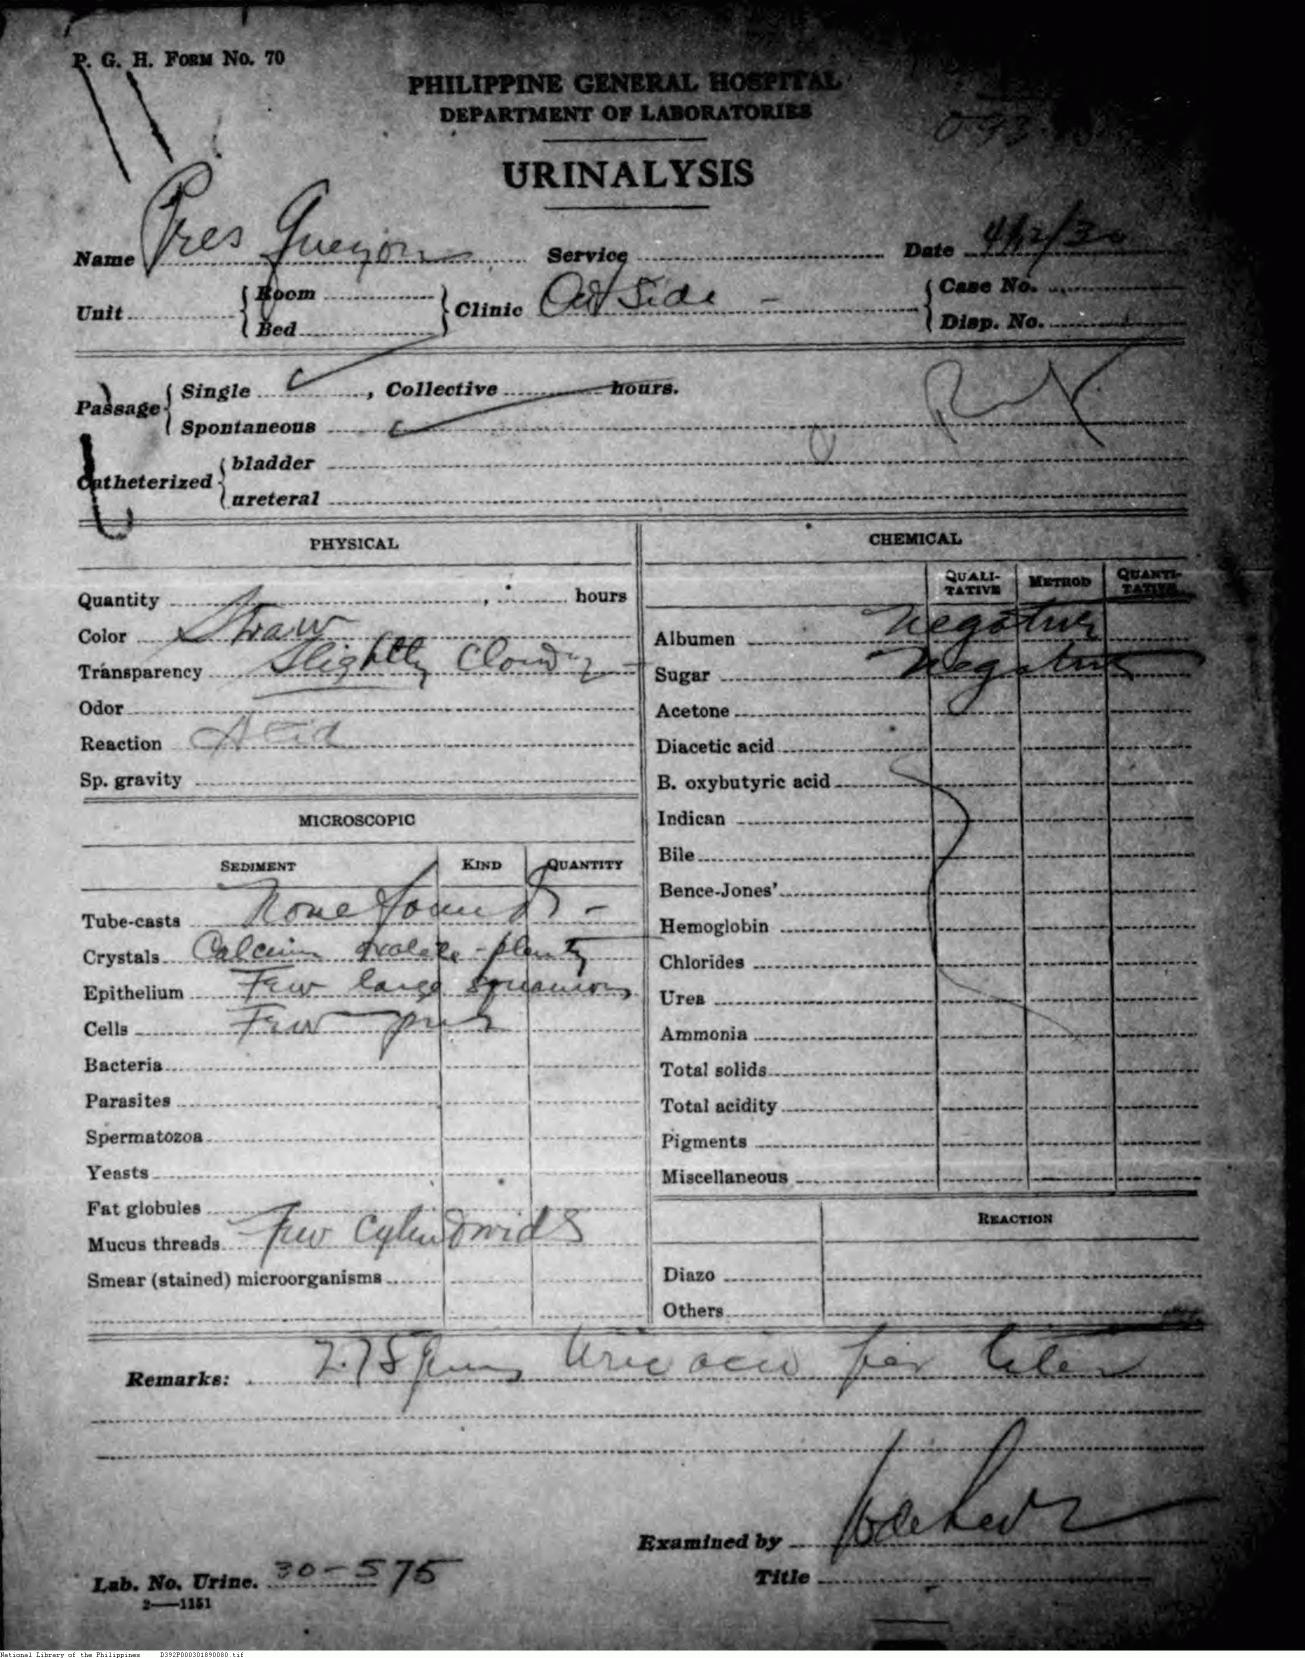 P. G. H. FORM No. 70
PHILIPPINE GENERAL HOSPITAL
DEPARTMENT OF LABORATORIES
093
URINALYSIS
Name Pres Quezon Service Date 4/12/30
Unit Room Bed Clinic Out Side - Case No. Disp. No.
Passage Single , Collective hours.
Spontaneous
Catheterized bladder
ureteral
PHYSICAL
Quantity , hours
Color Straw
Transparency Slightly Cloudy
Odor
Reaction Acid
Sp. gravity
MICROSCOPIC
SEDIMENT KIND QUANTITY
Tube-casts None found -
Crystals Calcium oxalate - plenty
Epithelium Few large squamous
Cells Few pus
Bacteria
Parasites
Spermatozoa
Yeasts
Fat globules
Mucus threads Few Cylindroids
Smear (stained) microorganisms
CHEMICAL
QUALI-TATIVE METHOD QUANTI-TATIVE
Albumen Negative
Sugar Negative
Acetone
Diacetic acid
B. oxybutyric acid
Indican
Bile
Bence-Jones'
Hemoglobin
Chlorides
Urea
Ammonia
Total solids
Total acidity
Pigments
Miscellaneous
REACTION
Diazo
Others
Remarks: Uric acid per liter
Examined by
Title
Lab. No. Urine. 30-575
2—1151
National Library of the Philippines D392P000301890080.tif